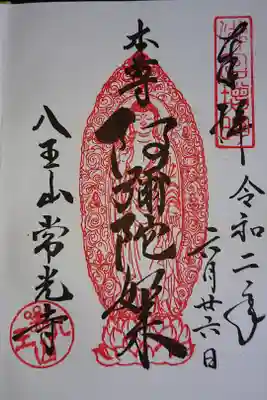 奉拝
令和二年
六月廿六日
本尊
阿弥陀如来
八王山常光寺